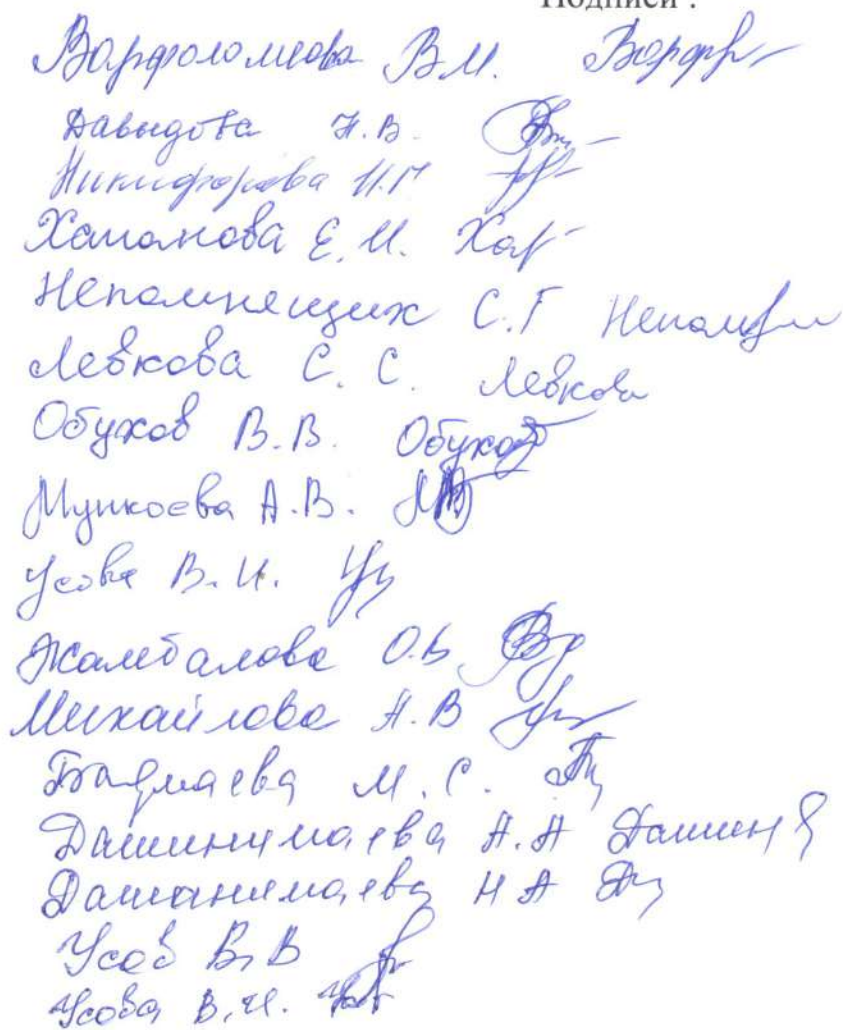 Подписи :
Варфоломеева В.М. Варфр
Давыдова Н.В.
Никифорова И.П
Хамонова Е.И. Хаг
Непомнящих С.Г Непомн
Левкова С. С. Левков
Обухов В.В. Обухов
Мункоева А.В.
Усова В.И. Ус
Жамбалова О.Б
Михайлова А.В
Бадмаева М.С.
Дашинимаева А.А Дашин
Дашанимаева Н А
Усов В.В
Усова В.И.